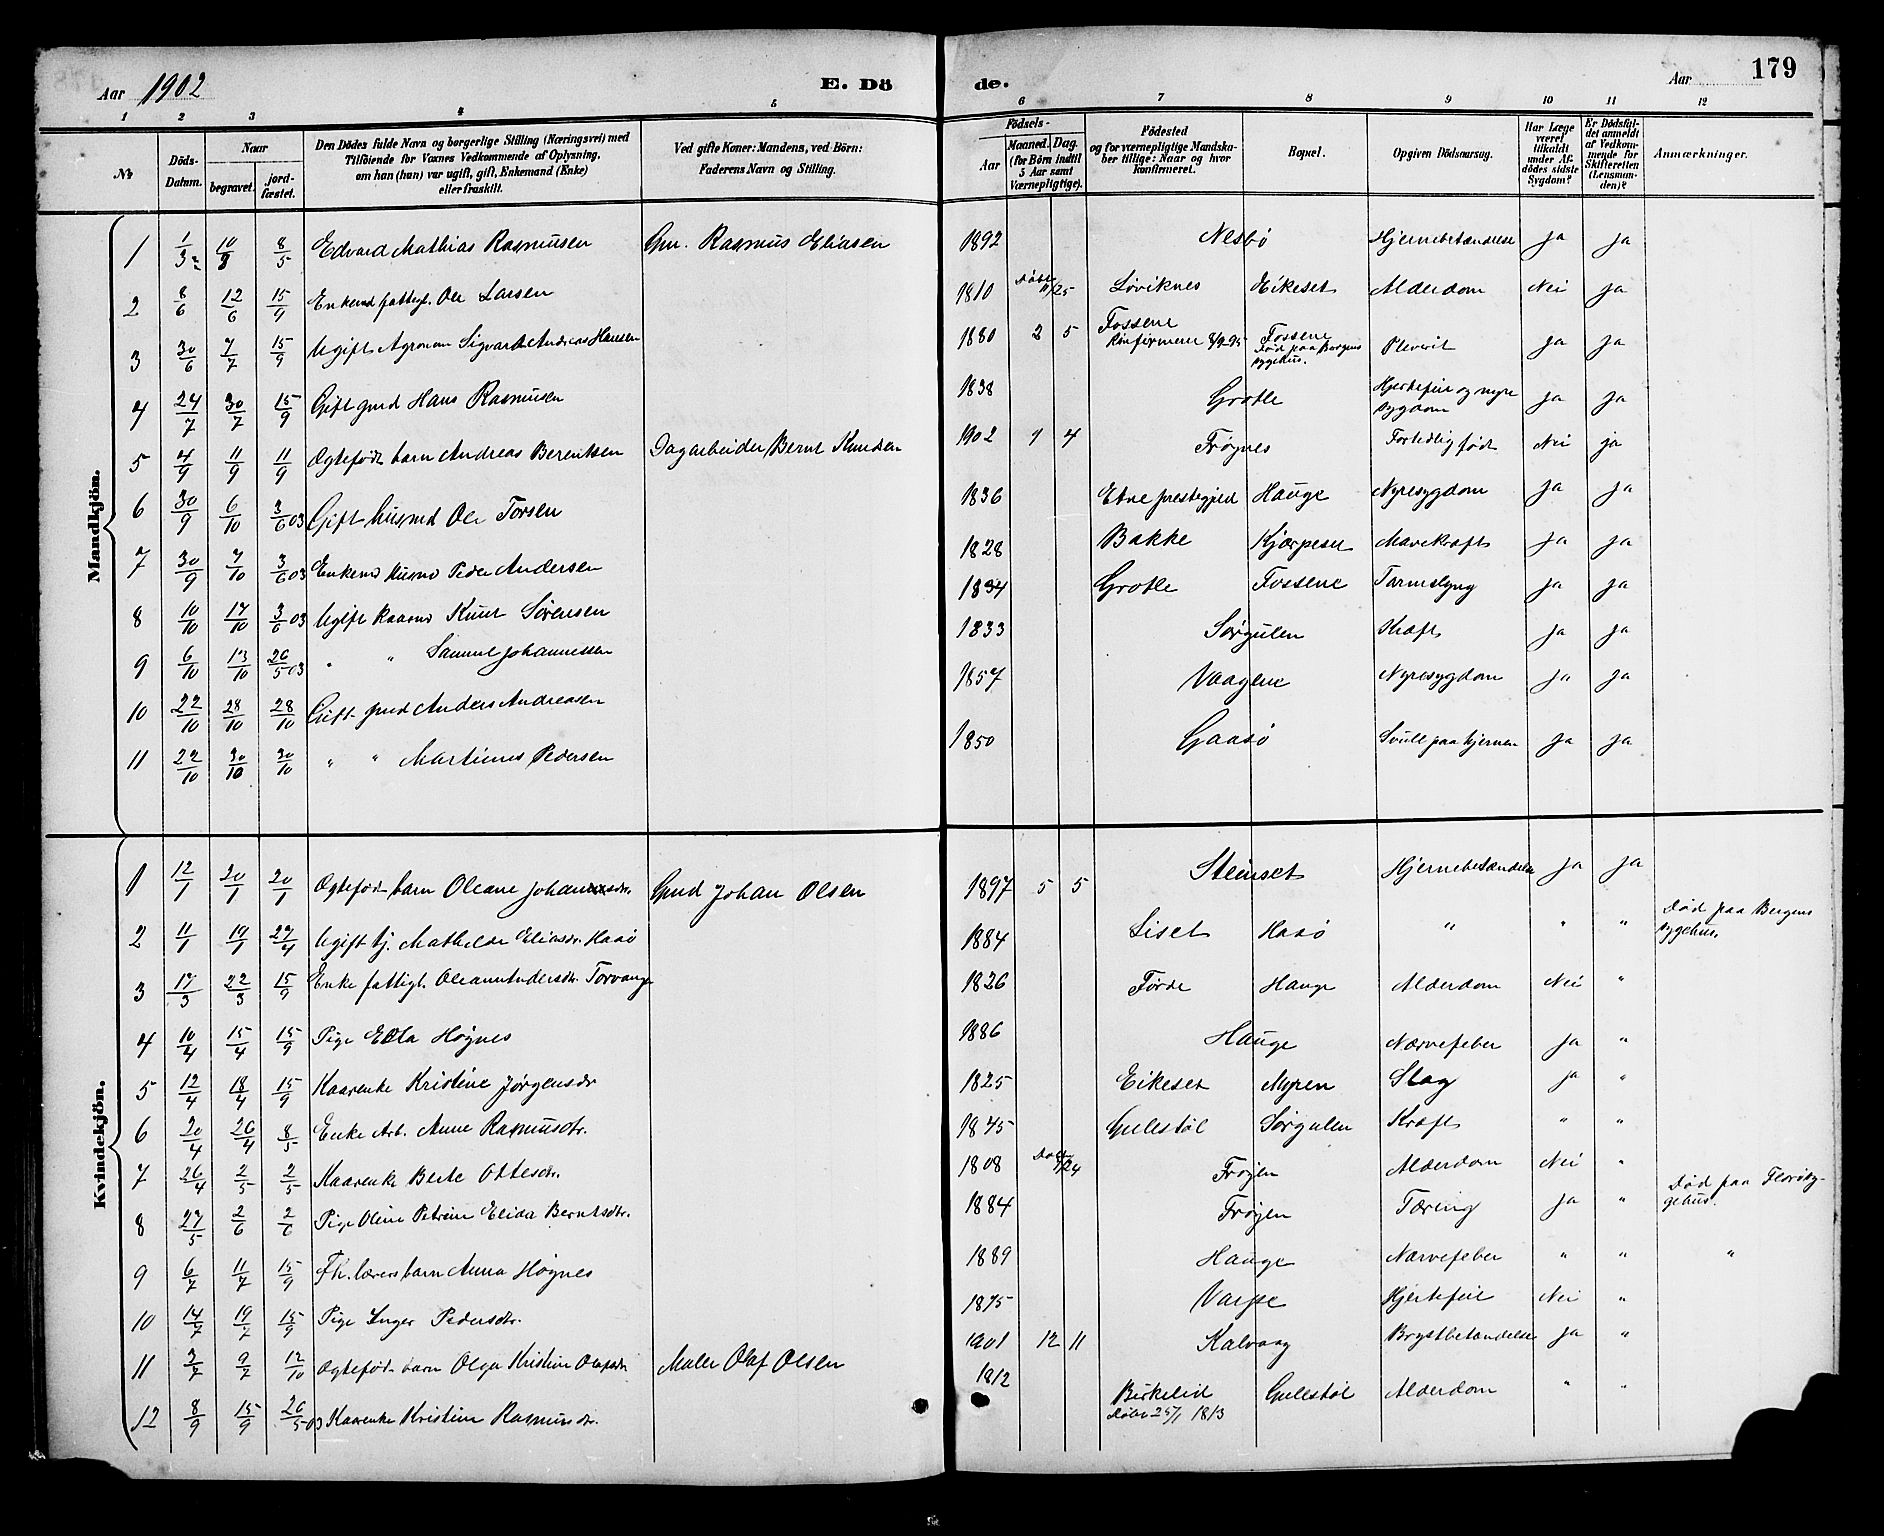 Aar 1902 E. Dö de. Aar 179
1 2 3 4 5 6 7 8 9 10 11 12
No Döds-Datum. Naar begravet. jord-fæstet. Den Dödes fulde Navn og borgerlige Stilling (Næringsvei) med Tilföiende for Voxnes Vedkommende af Oplysning, om han (hun) var ugift, gift, Enkemand (Enke) eller fraskilt. Ved gifte Koner: Mandens, ved Börn: Faderens Navn og Stilling. Födsels- Aar Maaned. Dag. (for Börn indtil 5 Aar samt Værnepligtige). Födested og for værnepligtige Mandska-ber tillige: Naar og hvor konfirmeret. Bopæl. Opgiven Dödsaarsag. Har Læge været tilkaldt under Af-dödes sidste Sygdom? Er Dödsfal-det anmeldt af Vedkom-mende for Skifteretten (Lensman-den)? Anmærkninger.
Mandkjön.
1 1/3 10/3 8/5 Edvard Mathias Rasmussen Gm. Rasmus Eliasen 1892 Nesbø Hjernebetændelse ja ja
2 8/6 12/6 15/9 Enkemd fattigl. Ole Larsen 1810 Døbt 11/25 Løviknes Eikeset Alderdom Nei ja
3 30/6 7/7 15/9 Ugift Agronom Sigvard Andreas Hansen 1880 2 5 Fossene Konfirmeret 8/9 95 Fossene Død paa Bergens sygehus. Plevrit ja ja
4 24/7 30/7 15/9 Gift gmd Hans Rasmusen 1838 Grotle Hjertefeil og nyre sygdom ja ja
5 4/9 11/9 11/9 Ogtefødt barn Andreas Berentsen Dagarbeider Bernt Knudsen 1902 9 4 Frøynes Fortidlig født Nei ja
6 30/9 6/10 3/6 03 Gift husmd Ole Torsen 1836 Etne prestegjeld Hauge Nyresygdom ja ja
7 30/9 7/10 3/6 03 Enkemd Husmd Peder Andersen 1828 Bakke Kjærpeset Mavekræft ja ja
8 10/10 17/10 3/6 03 Ugift kaarmd Knut Sørensen 1834 Grotle Fossene Tarmslyng ja ja
9 6/10 13/10 26/5 03 " " Samuel Johannessen 1833 Sørgulen Kræft ja ja
10 22/10 28/10 28/10 Gift gmd Anders Andreasen 1857 Vaagene Nyresygdom ja ja
11 22/10 30/10 30/10 " " Martinus Pedersen 1850 Gaasø Svull paa hjernen ja ja
Kvindekjön.
1 12/1 20/1 20/1 Ogtefødt barn Oleane Johansdr. Gmd Johan Olsen 1897 5 5 Steinset Hjernebetændelse ja ja
2 11/1 19/1 27/4 Ugift tj. Mathilde Eliasdr. Haasø 1884 Liset Haasø " " " Død paa Bergens sygehus.
3 17/3 22/3 15/9 Enke fattigl. Oleanna Andersdr. Torvanger 1826 Førde Hauge Alderdom Nei "
4 10/4 15/4 15/9 Pige Ella Høgnes 1886 Hauge Nærvefeber ja "
5 12/4 18/4 15/9 Kaarenke Kristine Jørgensdr 1825 Eikeset Myren Slag ja "
6 20/4 26/4 8/5 Enke Arb. Anne Rasmusdr. 1845 Gulestøl Sørgulen Kræft " "
7 26/4 2/5 2/5 Kaarenke Berte Ottesdr. 1808 Døbt 7/24 Frøyen Alderdom Nei "
8 27/5 2/6 2/6 Pige Oline Petrine Elida Berntsdtr. 1884 Frøyen Tæring ja " Død paa Florø sy-gehus.
9 6/7 11/7 15/9 Fh. lærers barn Anna Høgnes 1889 Hauge Nærvefeber " " "
10 14/7 19/7 15/9 Pige Inger Pedersdtr. 1875 Varpe Hjertefeil Nei "
11 3/7 9/7 12/10 Ogtefødt barn Olga Kristine Olafsdr Maler Olaf Olsen 1901 12 11 Kalvaag Brystbetændelse ja "
12 8/9 15/9 26/5 03 Kaarenke Kristine Rasmusdr. 1812 Birkelid Døbt 25/1 1813 Gulestøl Alderdom " "